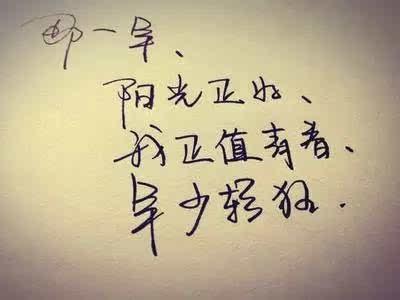 那一年、
阳光正好、
我正值青春、
年少轻狂.